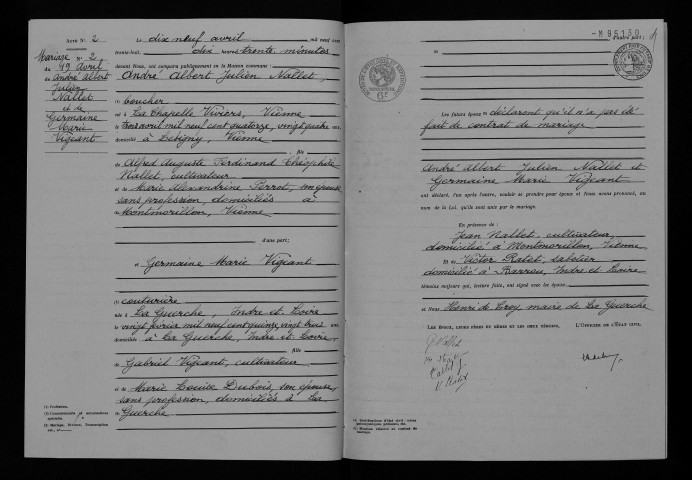 ACTE N° 2
Mariage N° 2
du 19 Avril
de André Albert
Julien
Nallet
et de
Germaine
Marie
Vigeant
Le dix neuf avril mil neuf cent
trente-huit, dix heures trente minutes
devant Nous, ont comparu publiquement en la Maison commune :
André Albert Julien Nallet,
(1) boucher
né à La Chapelle Viviers, Vienne
le trois avril mil neuf cent quatorze, vingt quatre ans,
domicilié à Leugny, Vienne
fils
de Alfred Auguste Ferdinand Théophile
Nallet, cultivateur
et de Marie Alexandrine Perrot, son épouse
sans profession, domiciliés à
Montmorillon, Vienne
d'une part;
et Germaine Marie Vigeant
(1) couturière
née à La Guerche, Indre et Loire
le vingt mil neuf cent quinze, vingt trois ans,
domiciliée à La Guerche, Indre et Loire,
fille
de Gabriel Vigeant, cultivateur
et de Marie Louise Dubois, son épouse,
sans profession, domiciliés à La
Guerche
(1) Profession.
M 95150
d'autre part;
Les futurs époux déclarent qu'il n'a pas été
fait de contrat de mariage
André Albert Julien Nallet et
Germaine Marie Vigeant
ont déclaré, l'un après l'autre, vouloir se prendre pour époux et Nous avons prononcé, au
nom de la Loi, qu'ils sont unis par le mariage.
En présence de :
Jean Nallet, cultivateur,
domicilié à Montmorillon, Vienne
Et de Victor Ratet, sabotier
domicilié à Barrou, Indre et Loire
témoins majeurs qui, lecture faite, ont signé avec les époux
et Nous Henri de Croy, maire de La Guerche
LES ÉPOUX, LEURS PÈRES ET MÈRES ET LES DEUX TÉMOINS, L'OFFICIER DE L'ÉTAT CIVIL